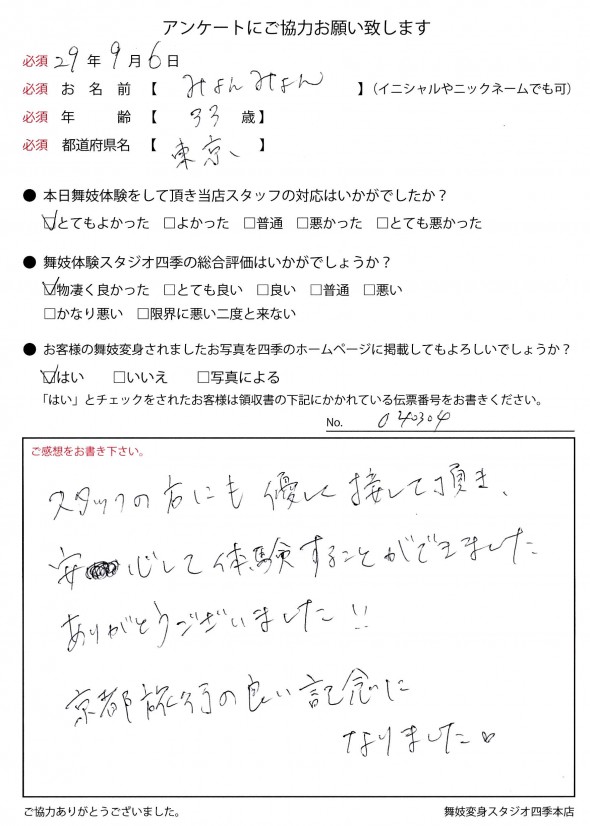 アンケートにご協力お願い致します
必須 29 年 9 月 6 日
必須 お名前 【 みょんみょん 】(イニシャルやニックネームでも可)
必須 年齢 【 33 歳】
必須 都道府県名 【 東京、 】
● 本日舞妓体験をして頂き当店スタッフの対応はいかがでしたか？
☑とてもよかった □よかった □普通 □悪かった □とても悪かった
● 舞妓体験スタジオ四季の総合評価はいかがでしょうか？
☑物凄く良かった □とても良い □良い □普通 □悪い
□かなり悪い □限界に悪い二度と来ない
● お客様の舞妓変身されましたお写真を四季のホームページに掲載してもよろしいでしょうか？
☑はい □いいえ □写真による
「はい」とチェックをされたお客様は領収書の下記にかかれている伝票番号をお書きください。
No. 040304
ご感想をお書き下さい。
スタッフの方にも優しく接して頂き、
安心して体験することができました
ありがとうございました!!
京都旅行の良い記念に
なりました♥
ご協力ありがとうございました。 舞妓変身スタジオ四季本店